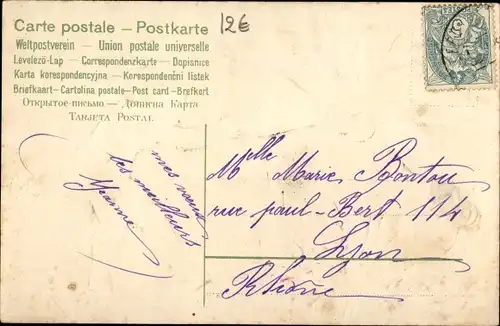 Carte postale – Postkarte
12€
Weltpostverein – Union postale universelle
Levelező-Lap – Correspondenzkarte – Dopisnice
Karta korespondencyjna – Korespondenční listek
Briefkaart – Cartolina postale – Post card – Brefkort
Открытое письмо – Дописна Карта
Tarjeta Postal
mes voeux
les meilleurs
Yvonne
Mlle Marie Bontou
rue paul-Bert 114
Lyon
Rhône